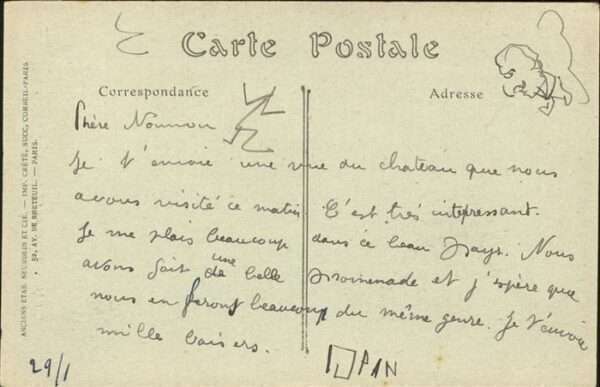 Carte Postale
Correspondance
Adresse
Chère Nounou
Je t'envoie une vue du chateau que nous
avons visité ce matin C'est très intepressant.
Je me plais beaucoup dans ce beau pays. Nous
avons fait une de belle promenade et j'espère que
nous en feront beaucoup du même genre. Je t'envoie
mille baisers.
29/1
PAN
ANCIENS ETAB. NEURDEIN ET CIE. — IMP. CRÉTÉ, SUCC. CORBEIL-PARIS
52, AV. DE BRETEUIL. — PARIS.